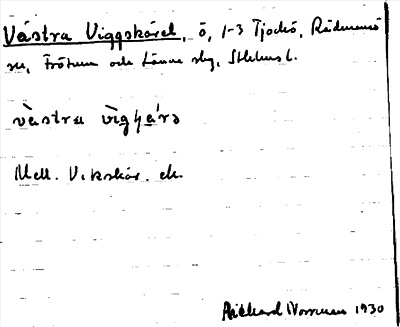 Västra Viggskäret, ö, 1-3 Tjockö, Rådmansö
sn, Frötuna och Länna slg, Sthlms l.
västra vigʃärə
Mell. V. kskär. ek.
Rickard Norrman 1930